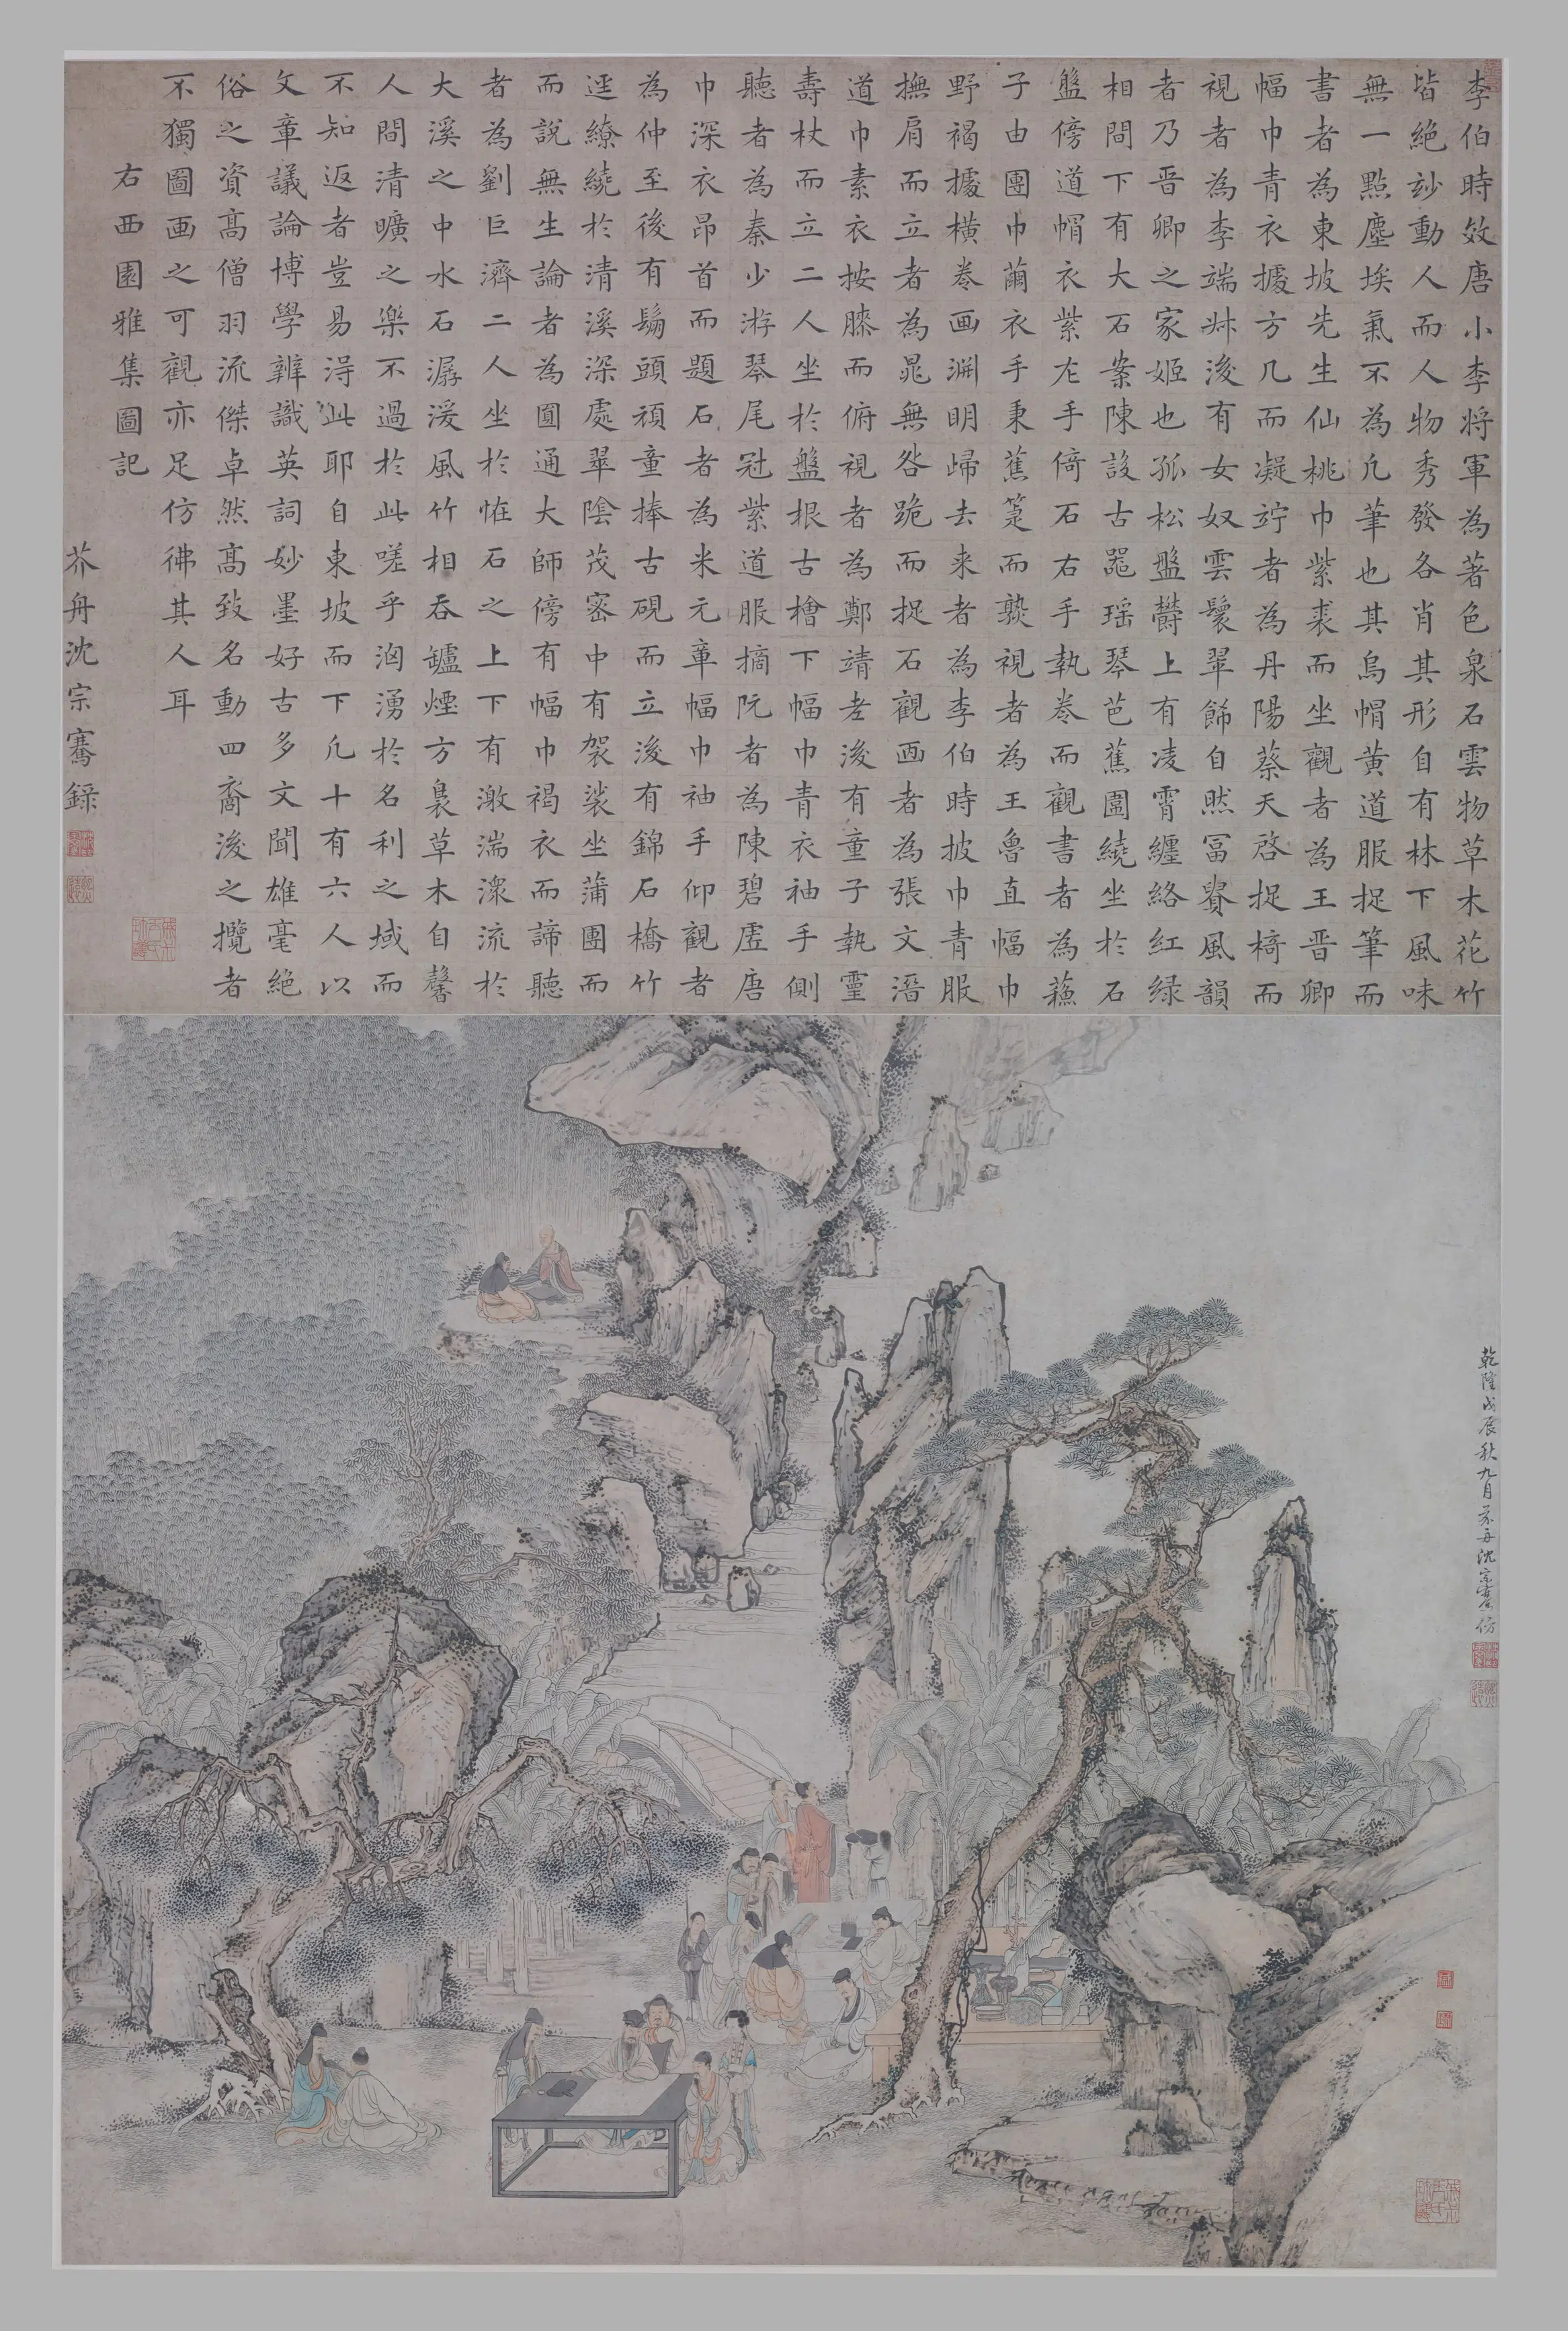 李伯時效唐小李將軍為著色泉石雲物草木花竹
皆絶玅動人而人物秀發各肖其形自有林下風味
無一點塵埃氣不為凢筆也其烏帽黃道服捉筆而
書者為東坡先生仙桃巾紫裘而坐觀者為王晉卿
幅巾青衣據方几而凝竚者為丹陽蔡天啓捉椅而
視者為李端叔後有女奴雲鬟翠飾自然冨貴風韻
者乃晉卿之家姬也孤松盤欝上有凌霄纏絡紅緑
相間下有大石案陳設古噐瑶琴芭蕉圍繞坐於石
盤傍道帽衣紫左手倚石右手執卷而觀書者為蘓
子由團巾繭衣手秉蕉箑而熟視者為王魯直幅巾
野褐據橫卷画淵明歸去来者為李伯時披巾青服
撫肩而立者為晁無咎跪而捉石觀画者為張文潛
道巾素衣按膝而俯視者為鄭靖老後有童子執靈
壽杖而立二人坐於盤根古檜下幅巾青衣袖手側
聽者為秦少游琴尾冠紫道服摘阮者為陳碧虛唐
巾深衣昂首而題石者為米元章幅巾袖手仰觀者
為仲至後有鬅頭頑童捧古硯而立後有錦石橋竹
逕繚繞於清溪深處翠陰茂密中有袈裟坐蒲團而
而說無生論者為圓通大師傍有幅巾褐衣而諦聽
者為劉巨濟二人坐於怪石之上下有激湍潀流於
大溪之中水石潺湲風竹相吞罏煙方裊草木自馨
人間清曠之樂不過於此嗟乎洶湧於名利之域而
不知返者豈易淂此耶自東坡而下凢十有六人以
文章議論博學辨識英詞妙墨好古多文聞雄毫絕
俗之資高僧羽流傑卓然高致名動四裔後之攬者
不獨圖画之可觀亦足仿彿其人耳
右西園雅集圖記
芥舟沈宗騫録
乾隆戊辰秋九月芥舟沈宗騫仿